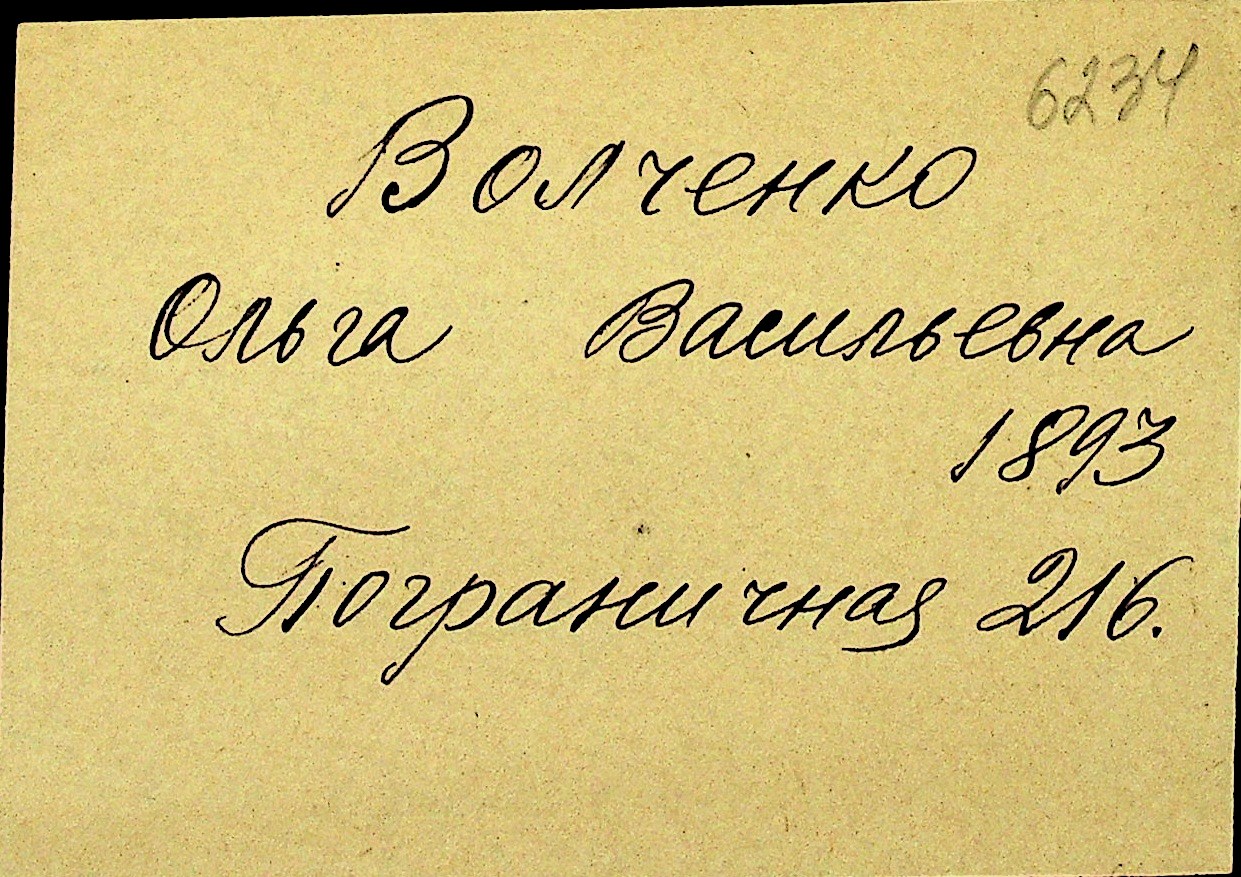 6234
Волченко
Ольга Васильевна
1893
Пограничная 216.